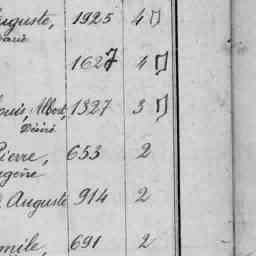 Auguste, 1925 4
1627 4
Louis, Albert, 1327 3
Désiré
Pierre, 653 2
Eugène
Auguste 914 2
Emile, 691 2